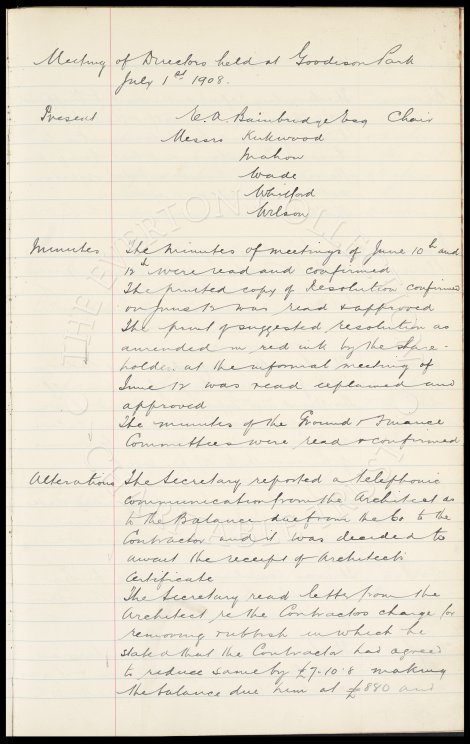 Meeting of Directors held at Goodison Park
July 1st 1908.
Present E. A. Bainbridge Esq Chair
Messrs Kirkwood
Mahon
Wade
Whitford
Wilson
Minutes The Minutes of meetings of June 10th and
12th were read and confirmed
The printed copy of Resolution confirmed
on June 12 was read & approved
The print of suggested resolution as
amended in red ink by the Share-
holders at the informal meeting of
June 12 was read explained and
approved
The minutes of the Ground & Finance
Committees were read & confirmed
Alterations The Secretary reported a telephonic
communication from the Architect as
to the Balance due from the Co to the
Contractor and it was decided to
await the receipt of Architects
Certificate
The Secretary read letter from the
Architect re the Contractors charge for
removing rubbish in which he
stated that the Contractor had agreed
to reduce same by £7-10-8 making
the balance due him at £880 and
THE EVERTON COLLECTION